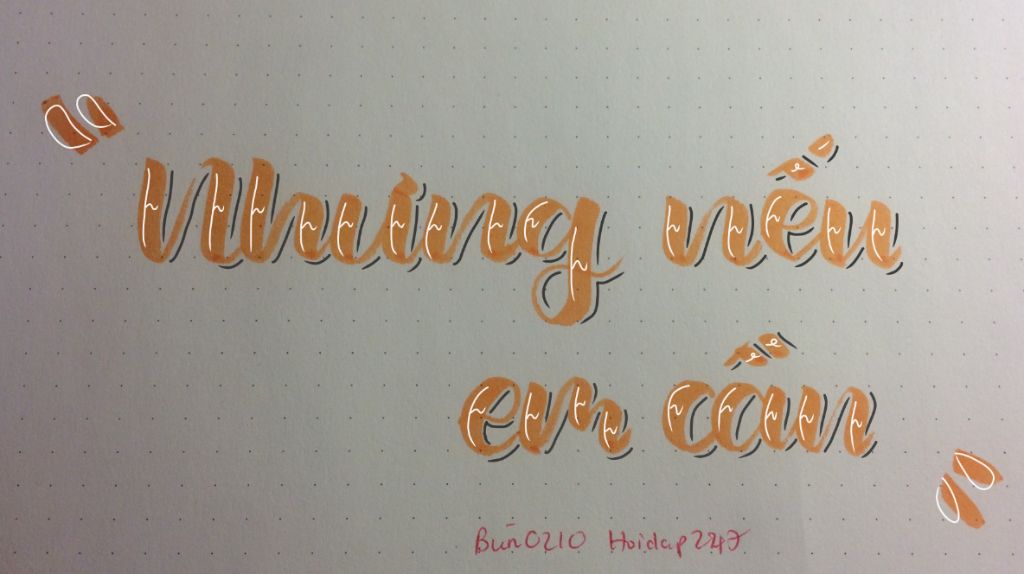 "Nhưng nếu
em cần"
Bun0210 Hoidap247